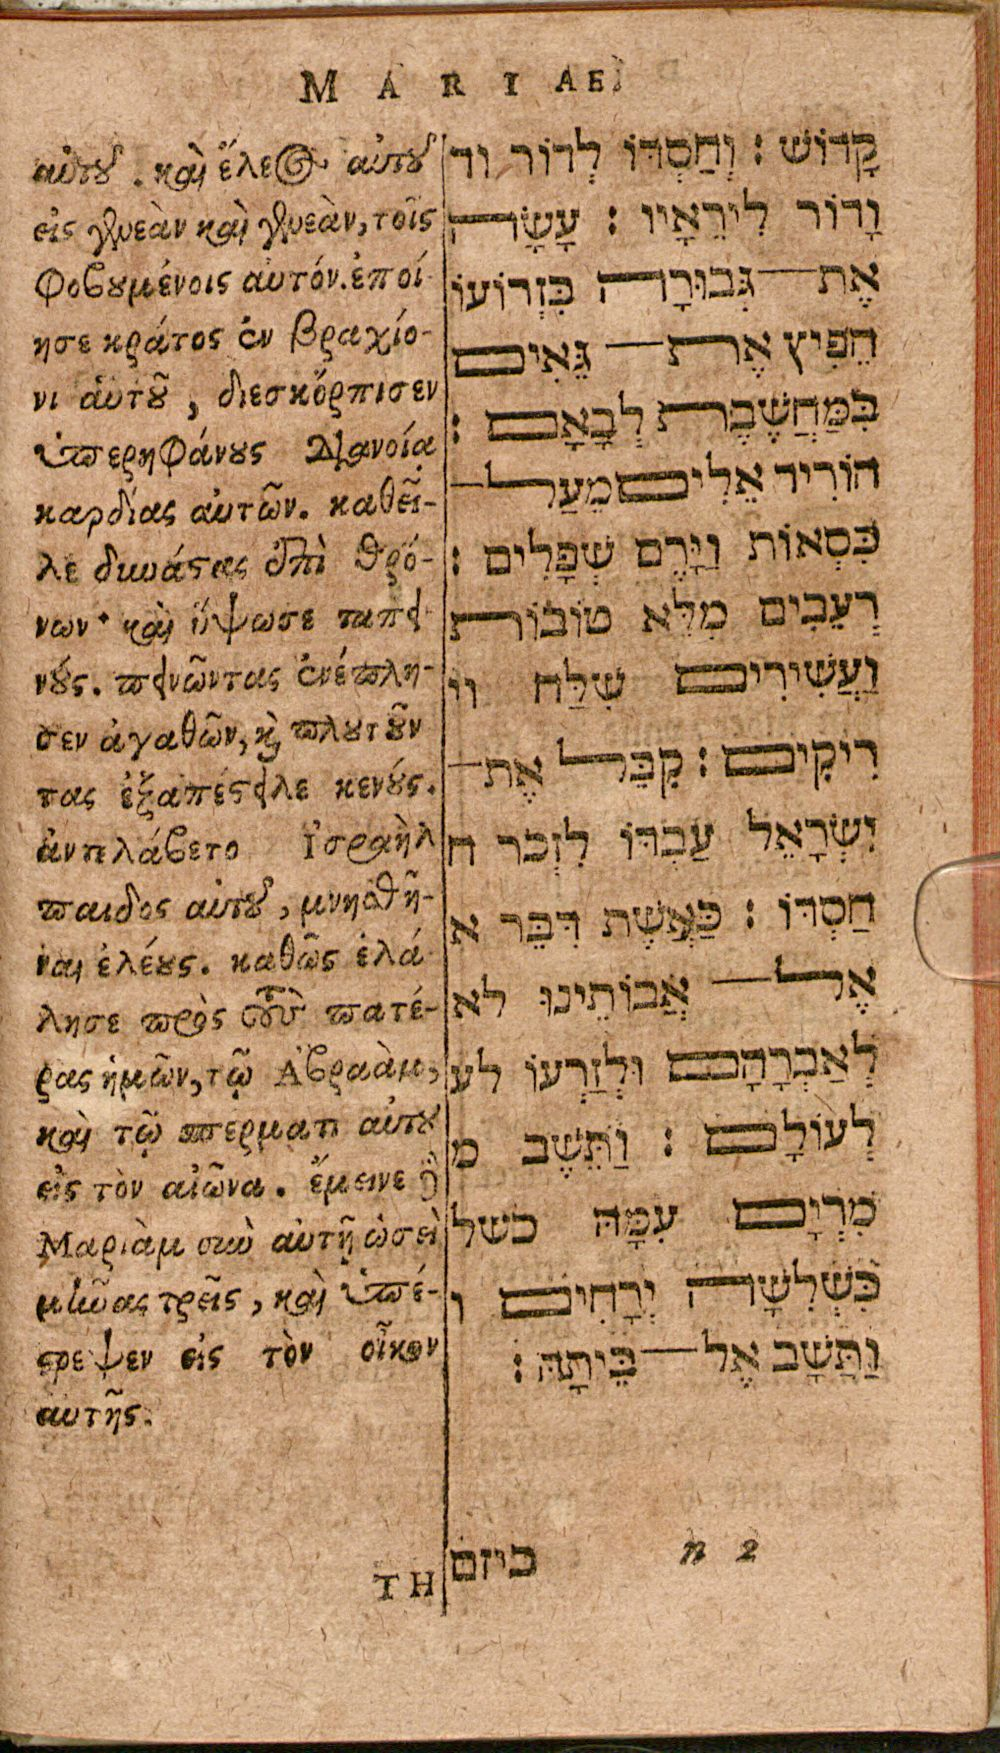 MARIAE
αὐτοῦ. καὶ ἔλεος αὐτοῦ
εἰς γενεὰν καὶ γενεὰν, τοῖς
φοβουμένοις αὐτόν. ἐποί-
ησε κράτος ἐν βραχίο-
νι ἁυτοῦ, διεσκόρπισεν
ὑπερηφάνους διανοίᾳ
καρδίας αὐτῶν. καθεῖ-
λε δυνάστας ἐπὶ θρό-
νων· καὶ ὕψωσε ταπει
νούς. πεινῶντας ἐνέπλη-
σεν ἀγαθῶν, καὶ πλουτοῦν
τας ἐξαπέστειλε κενούς.
ἀντιλάβετο Ἰσραὴλ
παιδος αὐτοῦ, μνησθῆ-
ναι ἐλέους. καθῶς ἐλά-
λησε πρὸς τοὺς πατέ-
ρας ἡμῶν, τῷ Ἀβραὰμ,
καὶ τῷ σπερματι αὐτου
εἰς τὸν αἰῶνα. ἔμεινε δὲ
Μαριὰμ σὺν αὐτῇ ὡσεὶ
μῆνας τρεῖς, καὶ ὑπέ-
στρεψεν εἰς τὸν οἶκον
αυτῆς.
ΤΗ
קָדוֹשׁ : וְחַסְדּוֹ לְדוֹר וד
וָדוֹר לִירֵאָיו : עָשָׂה
אֶת־ גְּבוּרָה בִּזְרוֹעוֹ
הֵפִיץ אֶת־ גֵּאִים
בְּמַּחֲשֶׁבֶת לְבָאָם :
הוֹרִיד אֵלִים מֵעַל־
כִּסְאוֹת וַיָּרֶם שְׁפָלִים :
רְעֵבִים מִלֵּא טוֹבוֹת
וַעֲשִׁירִים שִׁלַּח וי
רִיקִים : קִבֵּל אֶת־
יִשְׂרָאֵל עַבְדּוֹ לִזְכֹּר ח
חַסְדּוֹ : כַּאֲשֶׁת דִּבֵּר א
אֶל־ אֲבוֹתֵינוּ לא
לְאַבְרָהָם וּלְזַרְעוֹ לע
לְעוֹלָם : וַתֵּשֶׁב מ
מִרְיָם עִמָּהּ כשל
כִּשְׁלִשָׁה יְרָחִים ו
וַתָּשָׁב אֶל־ בֵּיתָהּ :
כיזם
n 2